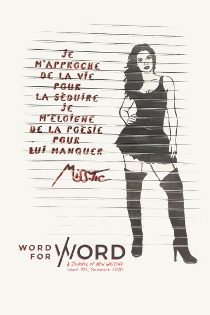 JE
M'APPROCHE
DE LA VIE
POUR
LA SÉDUIRE
JE
M'ÉLOIGNE
DE LA POÉSIE
POUR
LUI MANQUER
Miss.Tic
WORD
FOR WORD
A JOURNAL OF NEW WRITING
Issue #35, Summer 2020